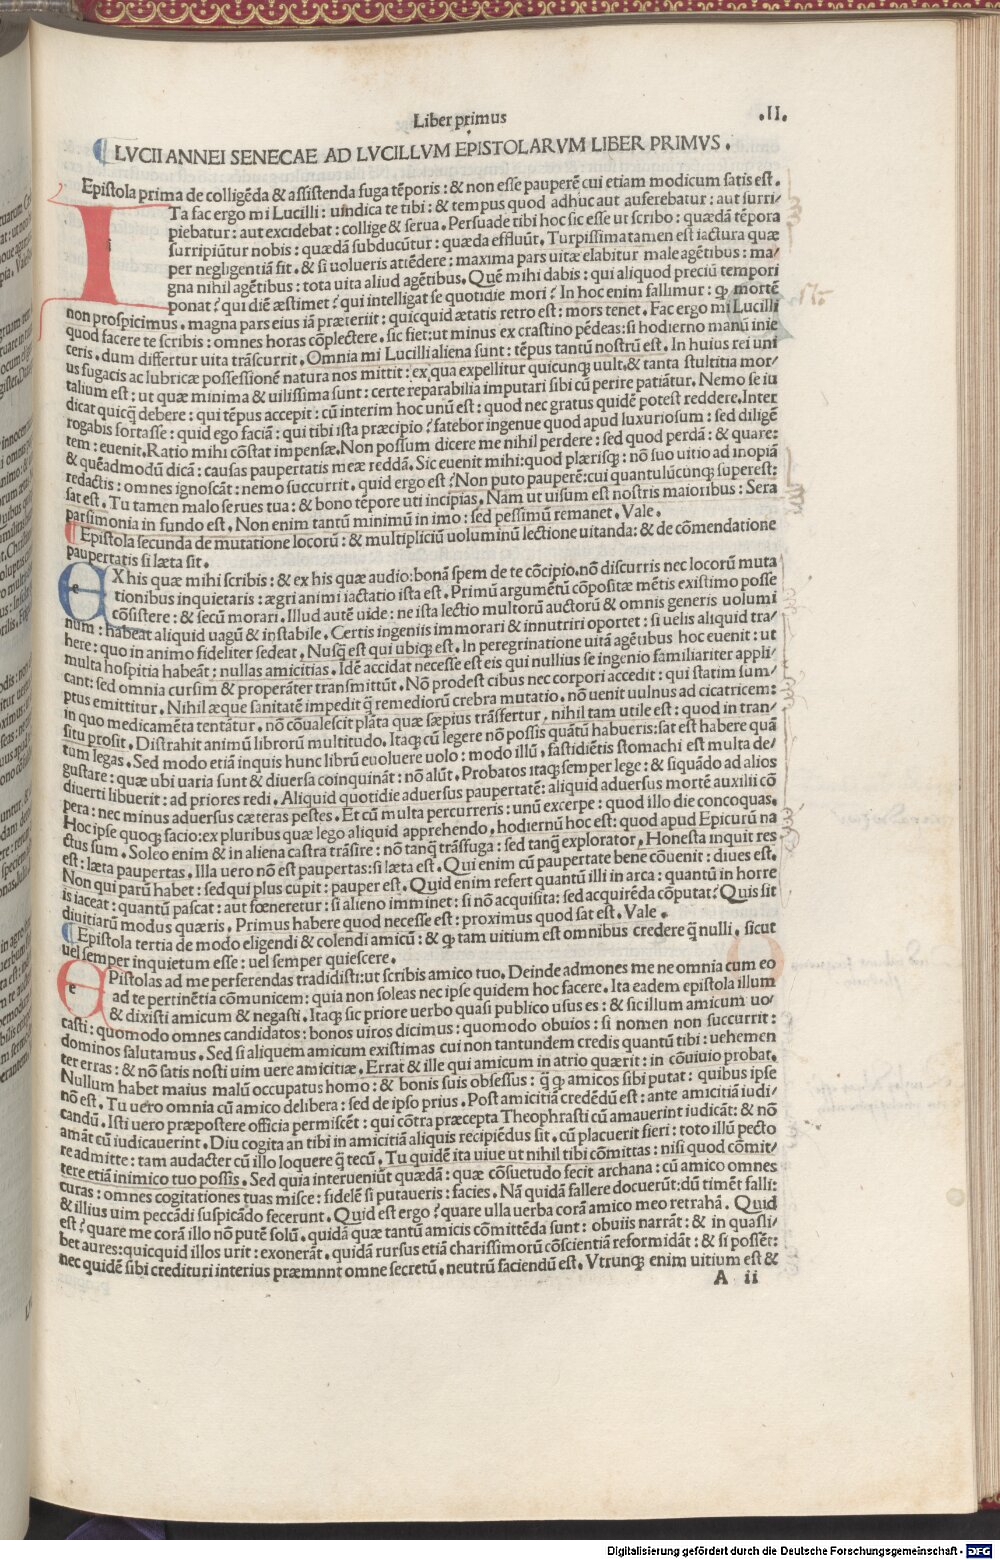 Liber primus
.II.
LVCII ANNEI SENECAE AD LVCILLVM EPISTOLARVM LIBER PRIMVS .
Epistola prima de colligēda & assistenda fuga tēporis : & non esse pauperē cui etiam modicum satis est .
ITa fac ergo mi Lucilli : uindica te tibi : & tempus quod adhuc aut auferebatur : aut surri/
piebatur : aut excidebat : collige & serua . Persuade tibi hoc sic esse ut scribo : quædā tēpora
surripiūtur nobis : quædā subducūtur : quæda effluūt . Turpissima tamen est iactura quæ
per negligentiā fit . & si uolueris attēdere : maxima pars uitæ elabitur male agētibus : ma/
gna nihil agētibus : tota uita aliud agētibus . Quē mihi dabis : qui aliquod preciū tempori
ponat ? qui diē æstimet ? qui intelligat se quotidie mori ? In hoc enim fallimur : ꝙ mortē
non prospicimus . magna pars eius iā præteriit : quicquid ætatis retro est : mors tenet . Fac ergo mi Lucilli
quod facere te scribis : omnes horas cōplectere . sic fiet : ut minus ex crastino pēdeas : si hodierno manū inie
ceris . dum differtur uita trāscurrit . Omnia mi Lucilli aliena sunt : tēpus tantū nostrū est . In huius rei uni
us fugacis ac lubricæ possessionē natura nos mittit : ex qua expellitur quicunqꝫ uult . & tanta stultitia mor/
talium est : ut quæ minima & uilissima sunt : certe reparabilia imputari sibi cū perire patiātur . Nemo se iu
dicat quicq̄ debere : qui tēpus accepit : cū interim hoc unū est : quod nec gratus quidē potest reddere . Inter
rogabis fortasse : quid ego faciā : qui tibi ista præcipio ? fatebor ingenue quod apud luxuriosum : sed diligē
tem : euenit . Ratio mihi cōstat impensæ . Non possum dicere me nihil perdere : sed quod perdā : & quare :
& quēadmodū dicā : causas paupertatis meæ reddā . Sic euenit mihi : quod plærisqꝫ : nō suo uitio ad inopiā
redactis : omnes ignoscāt : nemo succurrit . quid ergo est ? Non puto pauperē : cui quantulūcunqꝫ superest :
sat est . Tu tamen malo serues tua : & bono tēpore uti incipias . Nam ut uisum est nostris maioribus : Sera
parsimonia in fundo est . Non enim tantū minimū in imo : sed pessimū remanet . Vale .
Epistola secunda de mutatione locorū : & multipliciū uoluminū lectione uitanda : & de cōmendatione
paupertatis si læta sit .
EX his quæ mihi scribis : & ex his quæ audio : bonā spem de te cōcipio . nō discurris nec locorū muta
tionibus inquietaris : ægri animi iactatio ista est . Primū argumētū cōpositæ mētis existimo posse
cōsistere : & secū morari . Illud autē uide : ne ista lectio multorū auctorū & omnis generis uolumi
num : habeat aliquid uagū & instabile . Certis ingeniis immorari & innutriri oportet : si uelis aliquid tra/
here : quo in animo fideliter sedeat . Nusq̄ est qui ubiqꝫ est . In peregrinatione uitā agētibus hoc euenit : ut
multa hospitia habeāt : nullas amicitias . Idē accidat necesse est eis qui nullius se ingenio familiariter appli/
cant : sed omnia cursim & properāter transmittūt . Nō prodest cibus nec corpori accedit : qui statim sum/
ptus emittitur . Nihil æque sanitatē impedit q̄ remediorū crebra mutatio . nō uenit uulnus ad cicatricem :
in quo medicamēta tentātur . nō cōualescit plāta quæ sæpius trāsfertur . nihil tam utile est : quod in tran/
situ prosit . Distrahit animū librorū multitudo . Itaqꝫ cū legere nō possis quātū habueris : sat est habere quā
tum legas . Sed modo etiā inquis hunc librū euoluere uolo : modo illū . fastidiētis stomachi est multa de/
gustare : quæ ubi uaria sunt & diuersa coinquināt : nō alūt . Probatos itaqꝫ semper lege : & siquādo ad alios
diuerti libuerit : ad priores redi . Aliquid quotidie aduersus paupertatē : aliquid aduersus mortē auxilii cō
pera : nec minus aduersus cæteras pestes . Et cū multa percurreris : unū excerpe : quod illo die concoquas .
Hoc ipse quoqꝫ facio : ex pluribus quæ lego aliquid apprehendo . hodiernū hoc est : quod apud Epicurū na
ctus sum . Soleo enim & in aliena castra trāsire : nō tanq̄ trāsfuga : sed tanq̄ explorator . Honesta inquit res
est : læta paupertas . Illa uero nō est paupertas : si læta est . Qui enim cū paupertate bene cōuenit : diues est .
Non qui parū habet : sed qui plus cupit : pauper est . Quid enim refert quantū illi in arca : quantū in horre
is iaceat : quantū pascat : aut fœneretur : si alieno imminet : si nō acquisita : sed acquirēda cōputat ? Quis sit
diuitiarū modus quæris . Primus habere quod necesse est : proximus quod sat est . Vale .
Epistola tertia de modo eligendi & colendi amicū : & ꝙ tam uitium est omnibus credere q̄ nulli . sicut
uel semper inquietum esse : uel semper quiescere .
EPistolas ad me perferendas tradidisti : ut scribis amico tuo . Deinde admones me ne omnia cum eo
ad te pertinētia cōmunicem : quia non soleas nec ipse quidem hoc facere . Ita eadem epistola illum
& dixisti amicum & negasti . Itaqꝫ sic priore uerbo quasi publico usus es : & sic illum amicum uo/
casti : quomodo omnes candidatos : bonos uiros dicimus : quomodo obuios : si nomen non succurrit :
dominos salutamus . Sed si aliquem amicum existimas cui non tantundem credis quantū tibi : uehemen
ter erras : & nō satis nosti uim uere amicitiæ . Errat & ille qui amicum in atrio quærit : in cōuiuio probat .
Nullum habet maius malū occupatus homo : & bonis suis obsessus : q̄ ꝙ amicos sibi putat : quibus ipse
nō est . Tu uero omnia cū amico delibera : sed de ipso prius . Post amicitiā credēdū est : ante amicitiā iudi/
candū . Isti uero præpostere officia permiscēt : qui cōtra præcepta Theophrasti cū amauerint iudicāt : & nō
amāt cū iudicauerint . Diu cogita an tibi in amicitiā aliquis recipiēdus sit . cū placuerit fieri : toto illū pecto
re admitte : tam audacter cū illo loquere q̄ tecū . Tu quidē ita uiue ut nihil tibi cōmittas : nisi quod cōmit/
tere etiā inimico tuo possis . Sed quia interueniūt quædā : quæ cōsuetudo fecit archana : cū amico omnes
curas : omnes cogitationes tuas misce : fidelē si putaueris : facies . Nā quidā fallere docuerūt : dū timēt falli :
& illius uim peccādi suspicādo fecerunt . Quid est ergo ? quare ulla uerba corā amico meo retrahā . Quid
est ? quare me corā illo nō putē solū . quidā quæ tantū amicis cōmittēda sunt : obuiis narrāt : & in quasli/
bet aures : quicquid illos urit : exonerāt . quidā rursus etiā charissimorū cōscientiā reformidāt : & si possēt :
nec quidē sibi credituri interius præmnnt omne secretū . neutrū faciendū est . Vtrunqꝫ enim uitium est &
A ii
Digitalisierung gefördert durch die Deutsche Forschungsgemeinschaft - DFG